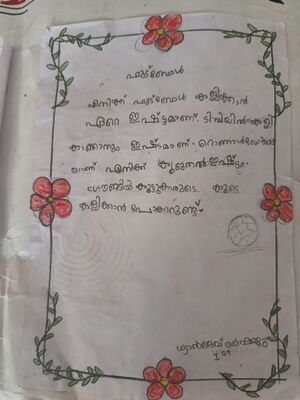 ഫുട്ബോൾ
എനിക്ക് ഫുട്ബോൾ കളിക്കാൻ
ഏറെ ഇഷ്ട്ടമാണ്. ടിവിയിൽ കളി
കാണാനും ഇഷ്ടമാണ്. റൊണാൾഡോയെ
യാണ് എനിക്ക് കൂടുതൽ ഇഷ്ടം.
ഗ്രൗണ്ടിൽ കൂട്ടുകാരുടെ കൂടെ
കളിക്കാൻ പോകാറുണ്ട്.
ധ്യാൻദേവ്